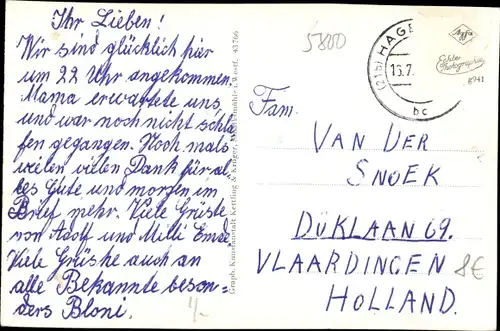 Ihr Lieben!
Wir sind glücklich hier
um 22 Uhr angekommen
Mama erwartete uns
und war noch nicht schla
fen gegangen. Noch mals
vielen vielen Dank für al
les Gute und morgen im
Brief mehr. Viele Grüsse
von Adolf und Milli
Viele Grüshe auch an
alle Bekannte beson-
ders Bloni.
4,-
Graph. Kunstanstalt Kettling & Krüger, i. Westf. 43766
5800
(215) HAGE
15.7.
bc
Agfa
Echte
Photographie
8941
Fam.
VAN DER
SNOEK
DÜKLAAN 69.
VLAARDINGEN 8€
HOLLAND.